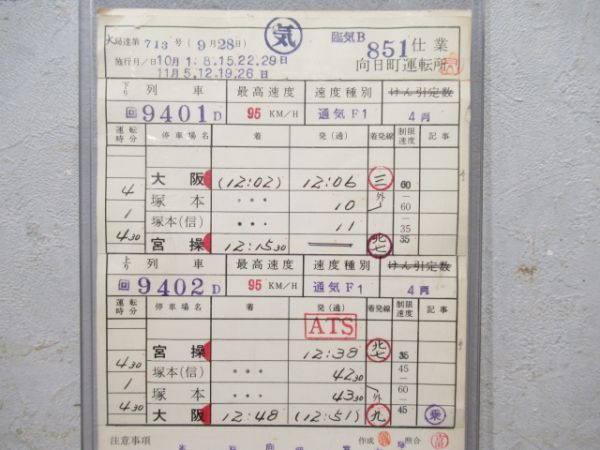 気 臨気B
大局達第713号(9月28日) 851仕業
施行月/日10月1.8.15.22.29日 向日町運転所
11月5.12.19.26日
下り 列車 最高速度 速度種別 けん引定数
回9401D 95 KM/H 通気F1 4両
運転時分 停車場名 着 発(通) 着発線 制限速度 記事
大阪 (12:02) 12:06 三 60
4 塚本 ・・・ 10 外 60
1 塚本(信) ・・・ 11 35
430 宮操 12:1530 北七 35
上り 列車 最高速度 速度種別 けん引定数
回9402D 95 KM/H 通気F1 4両
運転時分 停車場名 着 発(通) 着発線 制限速度 記事
ATS
宮操 12:38 北七 35
430 塚本(信) ・・・ 4230 45
1 塚本 ・・・ 4330 外 60
430 大阪 12:48 (12:51) 九 45 乗
注意事項 作成 照合